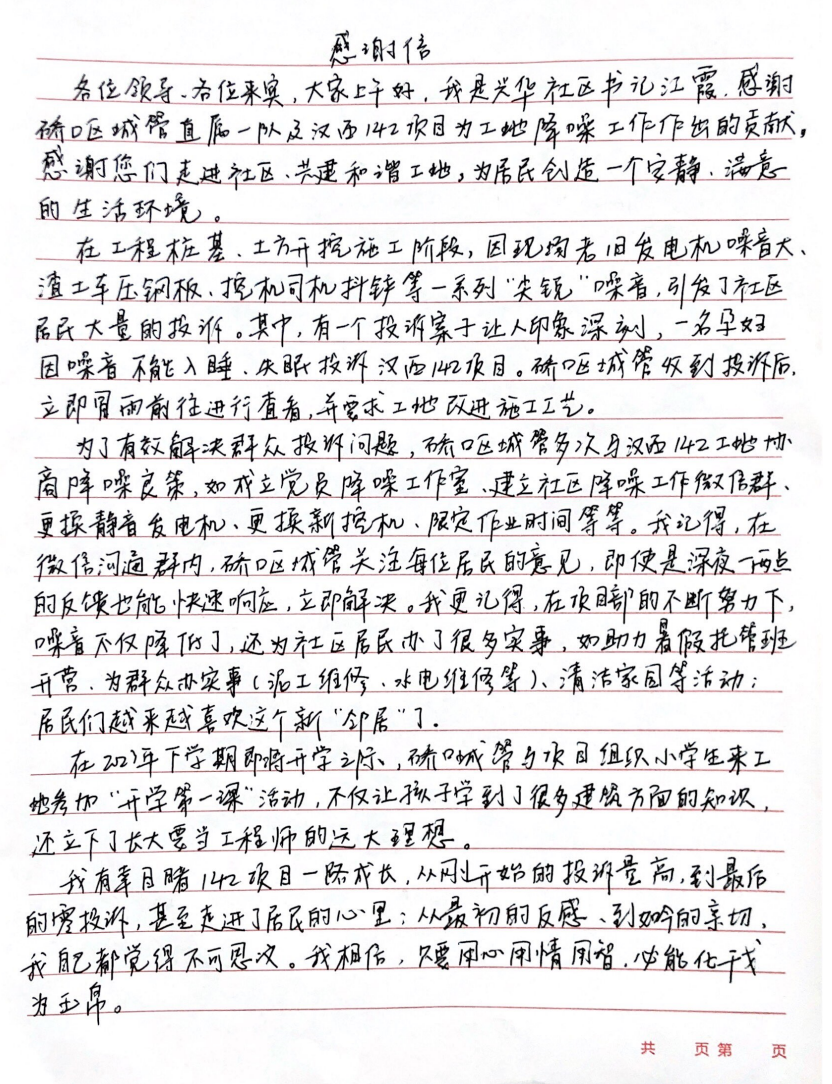 感谢信
各位领导、各位来宾，大家上午好，我是兴华社区书记江霞，感谢
硚口区城管直属一队及汉西142项目为工地降噪工作作出的贡献，
感谢您们走进社区、共建和谐工地，为居民创造一个安静、满意
的生活环境。
在工程桩基、土方开挖施工阶段，因现场老旧发电机噪音大、
渣土车压钢板、挖机司机抖铲等一系列“尖锐”噪音，引发了社区
居民大量的投诉。其中，有一个投诉案子让人印象深刻，一名孕妇
因噪音不能入睡、失眠投诉汉西142项目。硚口区城管收到投诉后，
立即冒雨前往进行查看，并要求工地改进施工工艺。
为了有效解决群众投诉问题，硚口区城管多次与汉西142工地协
商降噪良策，如成立党员降噪工作室、建立社区降噪工作微信群、
更换静音发电机、更换新挖机、限定作业时间等等。我记得，在
微信沟通群内，硚口区城管关注每位居民的意见，即使是深夜一两点
的反馈也能快速响应，立即解决。我更记得，在项目部的不断努力下，
噪音不仅降低了，还为社区居民办了很多实事，如助力暑假托管班
开营、为群众办实事（泥工维修、水电维修等）、清洁家园等活动；
居民们越来越喜欢这个新“邻居”了。
在2023年下学期即将开学之际，硚口城管与项目组织小学生来工
地参加“开学第一课”活动，不仅让孩子学到了很多建筑方面的知识，
还立下了长大要当工程师的远大理想。
我有幸目睹142项目一路成长，从刚开始的投诉量高，到最后
的零投诉，甚至走进了居民的心里；从最初的反感、到如今的亲切，
我自己都觉得不可思议。我相信，只要用心用情用智，必能化干戈
为玉帛。
共 页 第 页